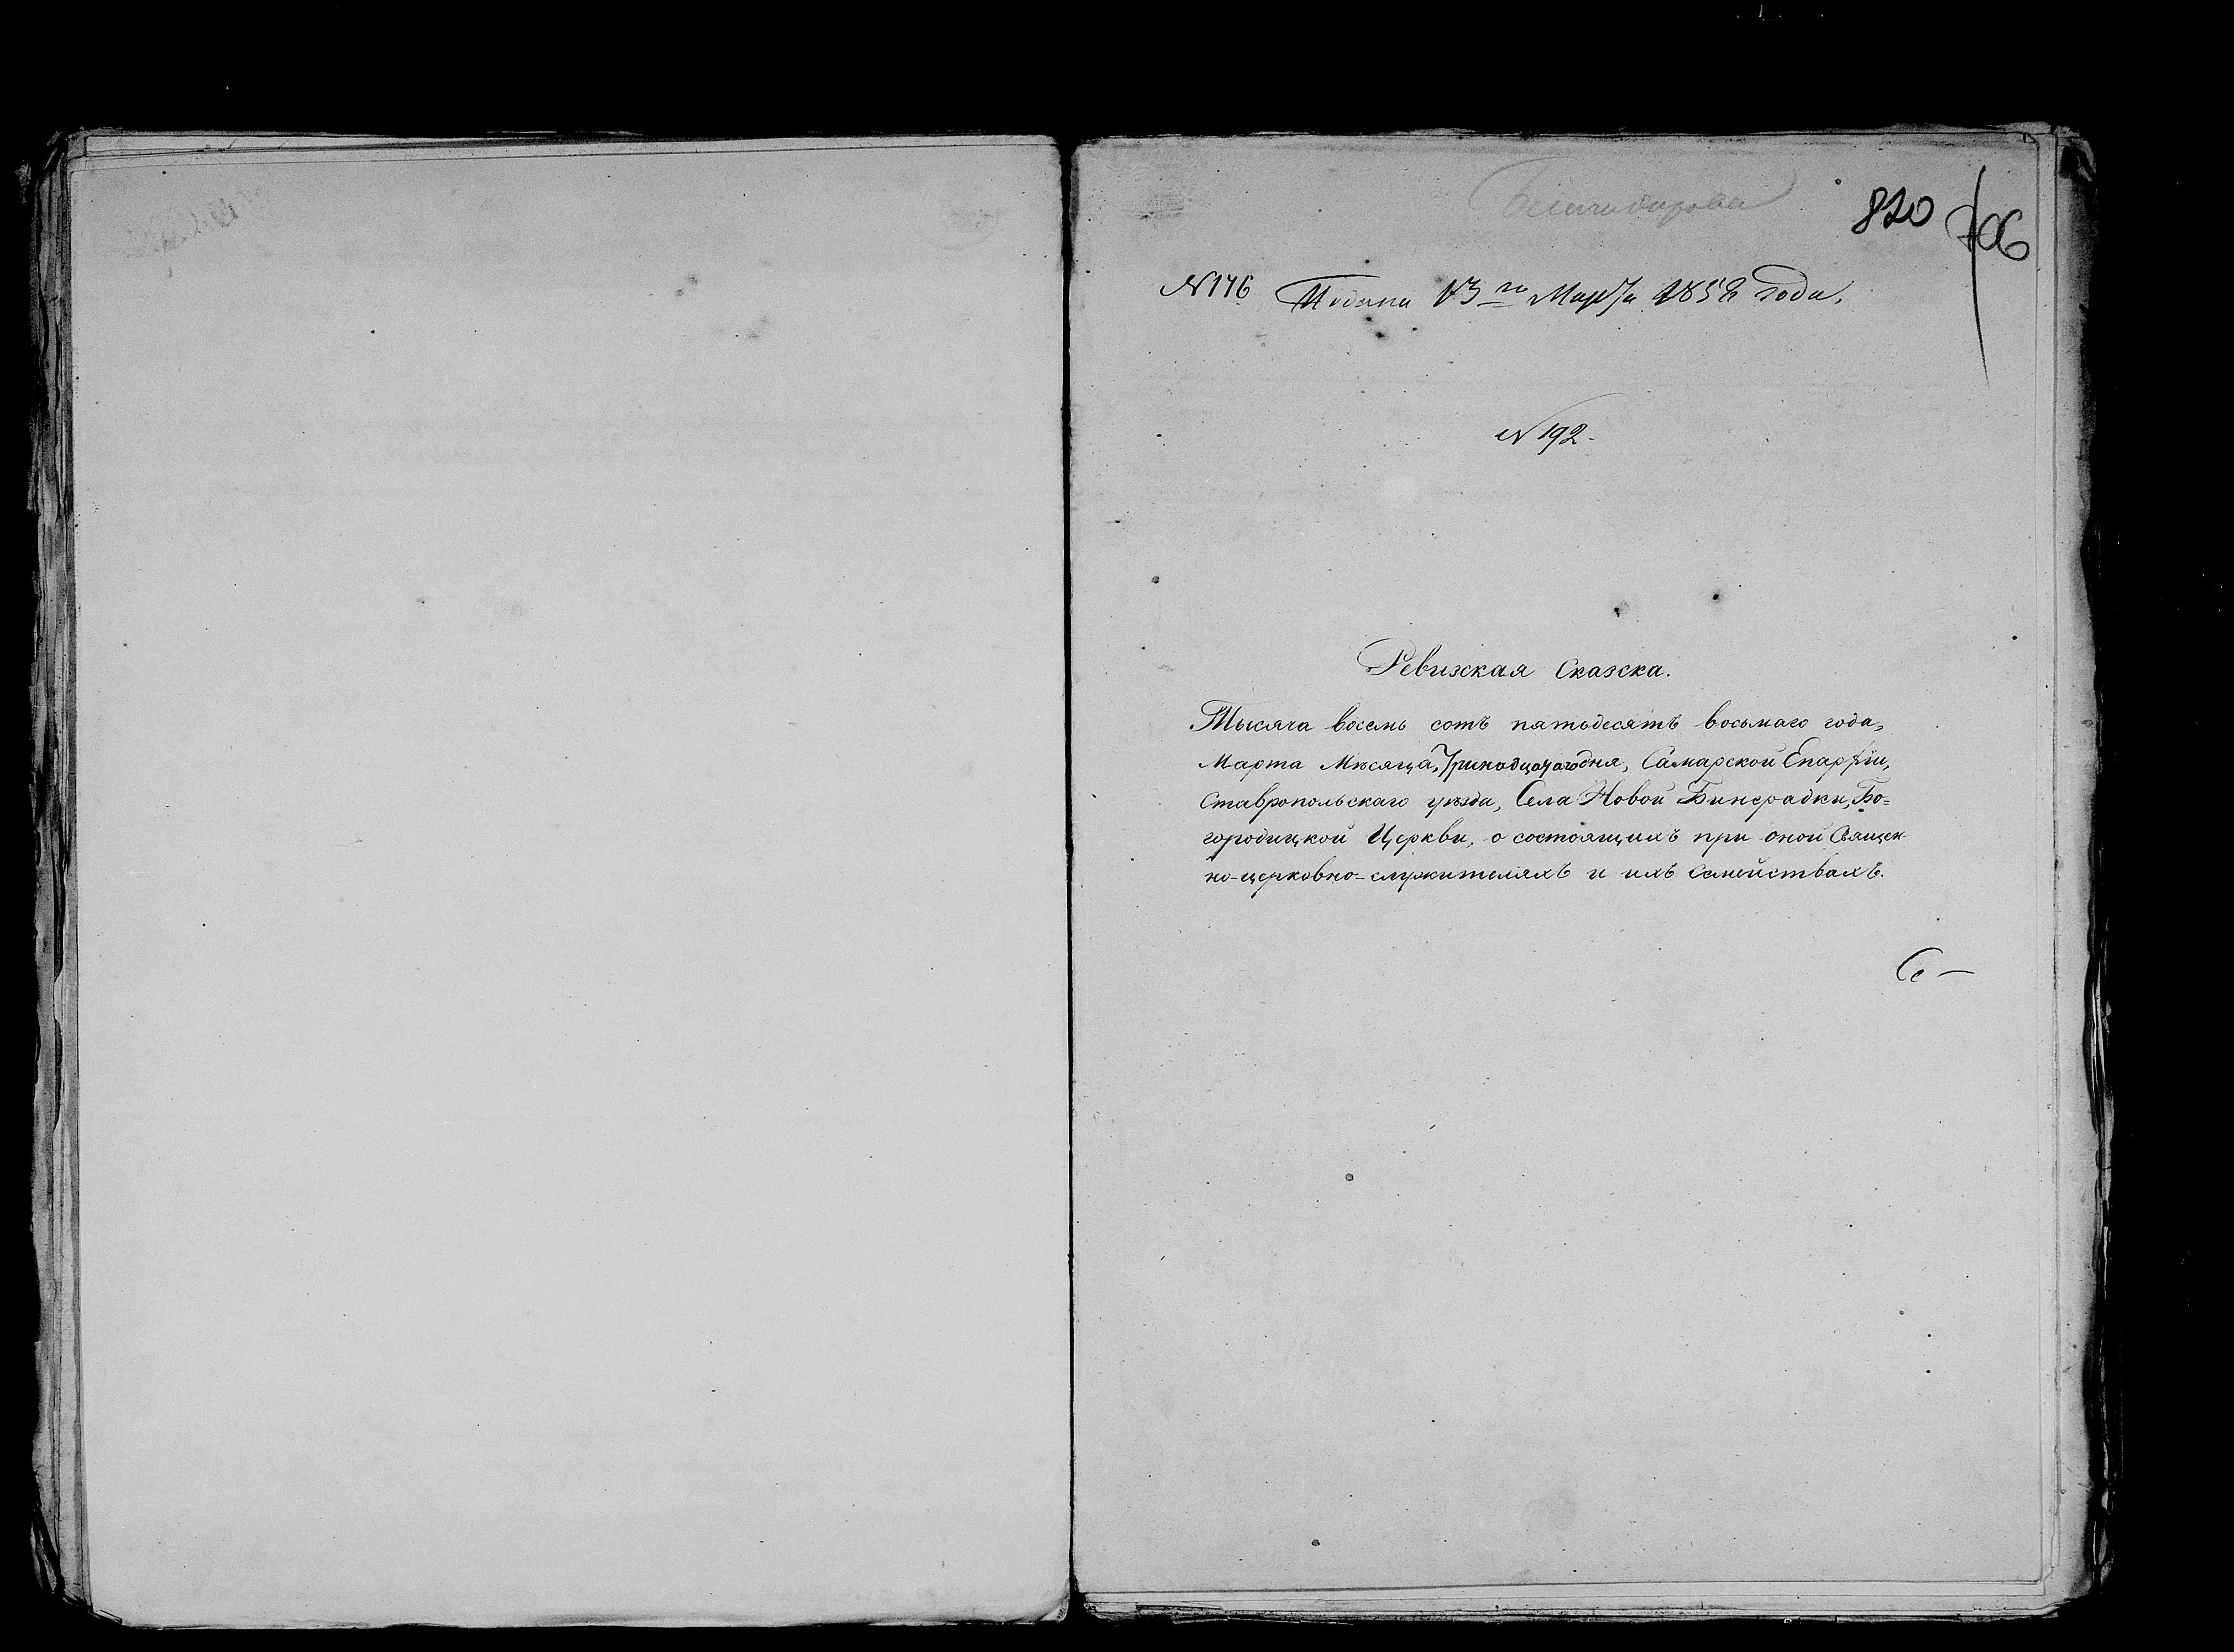 820 706
№ 176 Подана 13го Марта 1858 года.
№ 192.
Ревизкая Сказска.
Тысяча восемь сотъ пятьдесятъ восьмаго года,
Марта Мѣсяца, Тринадцатаго дня, Самарской Епархіи,
Ставропольскаго уѣзда, Села Новой Бинарадки, Бо=
городицкой Церкви, о состоящихъ при оной Священ
но-церковно-служителяхъ и ихъ Семействахъ.